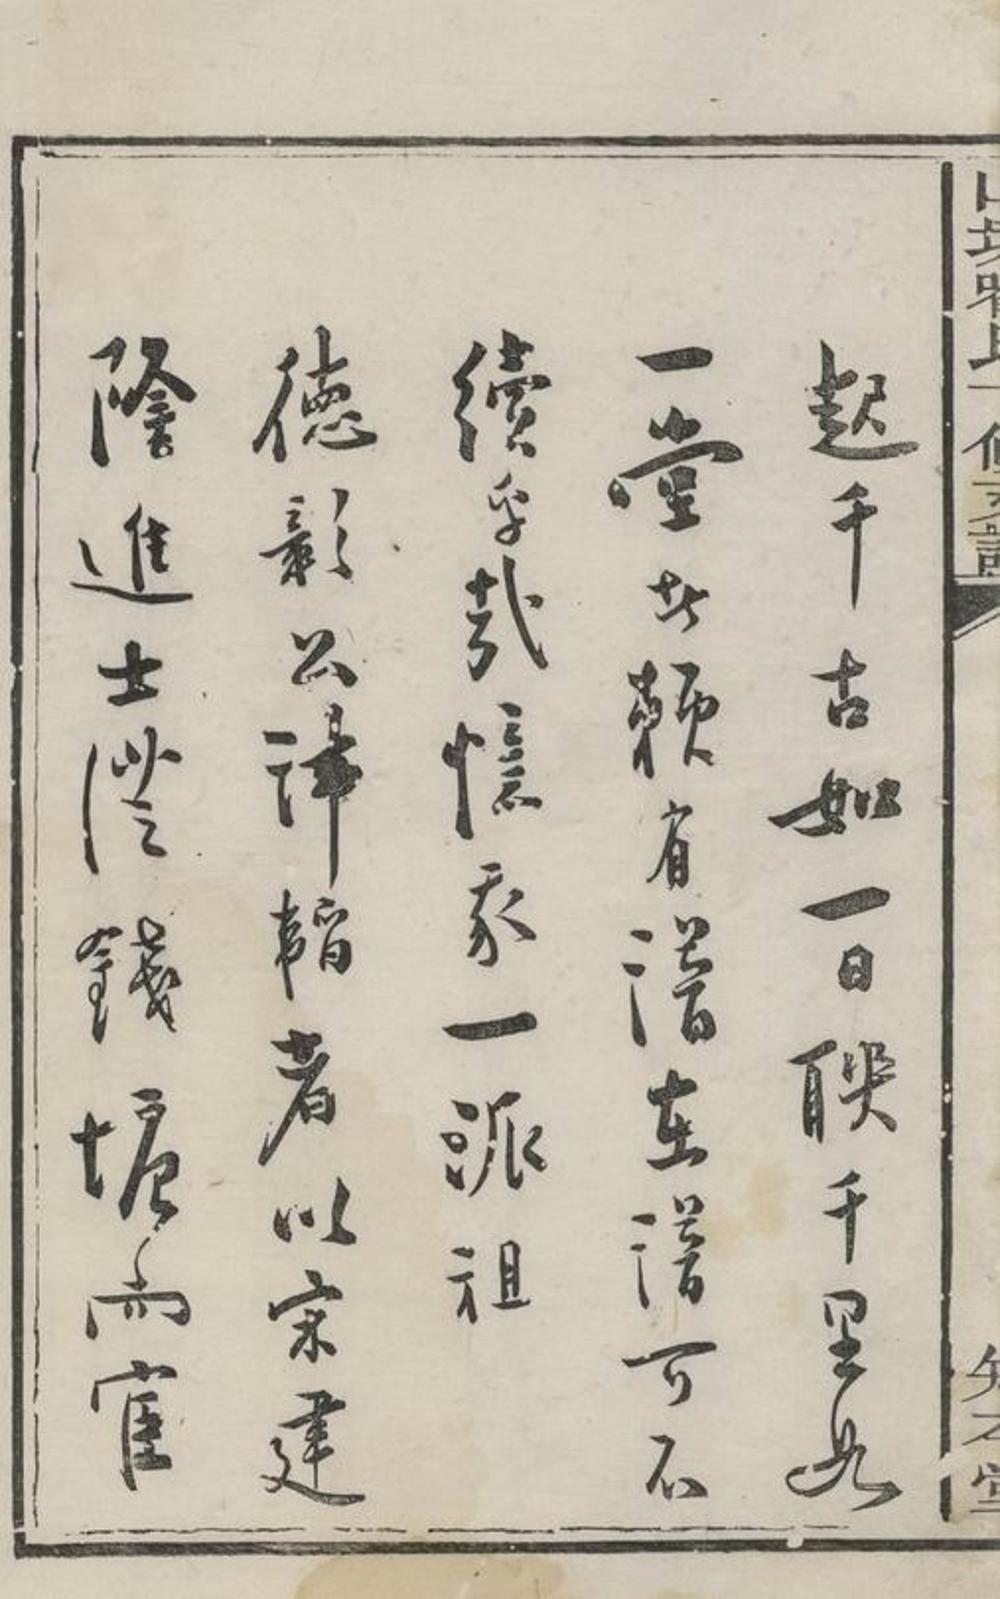 起千古如一日聯千里如
一堂者賴有譜在譜可不
續乎哉憶我一派祖
德彰公諱韜者以宋建
隆進士從錢塘而宦